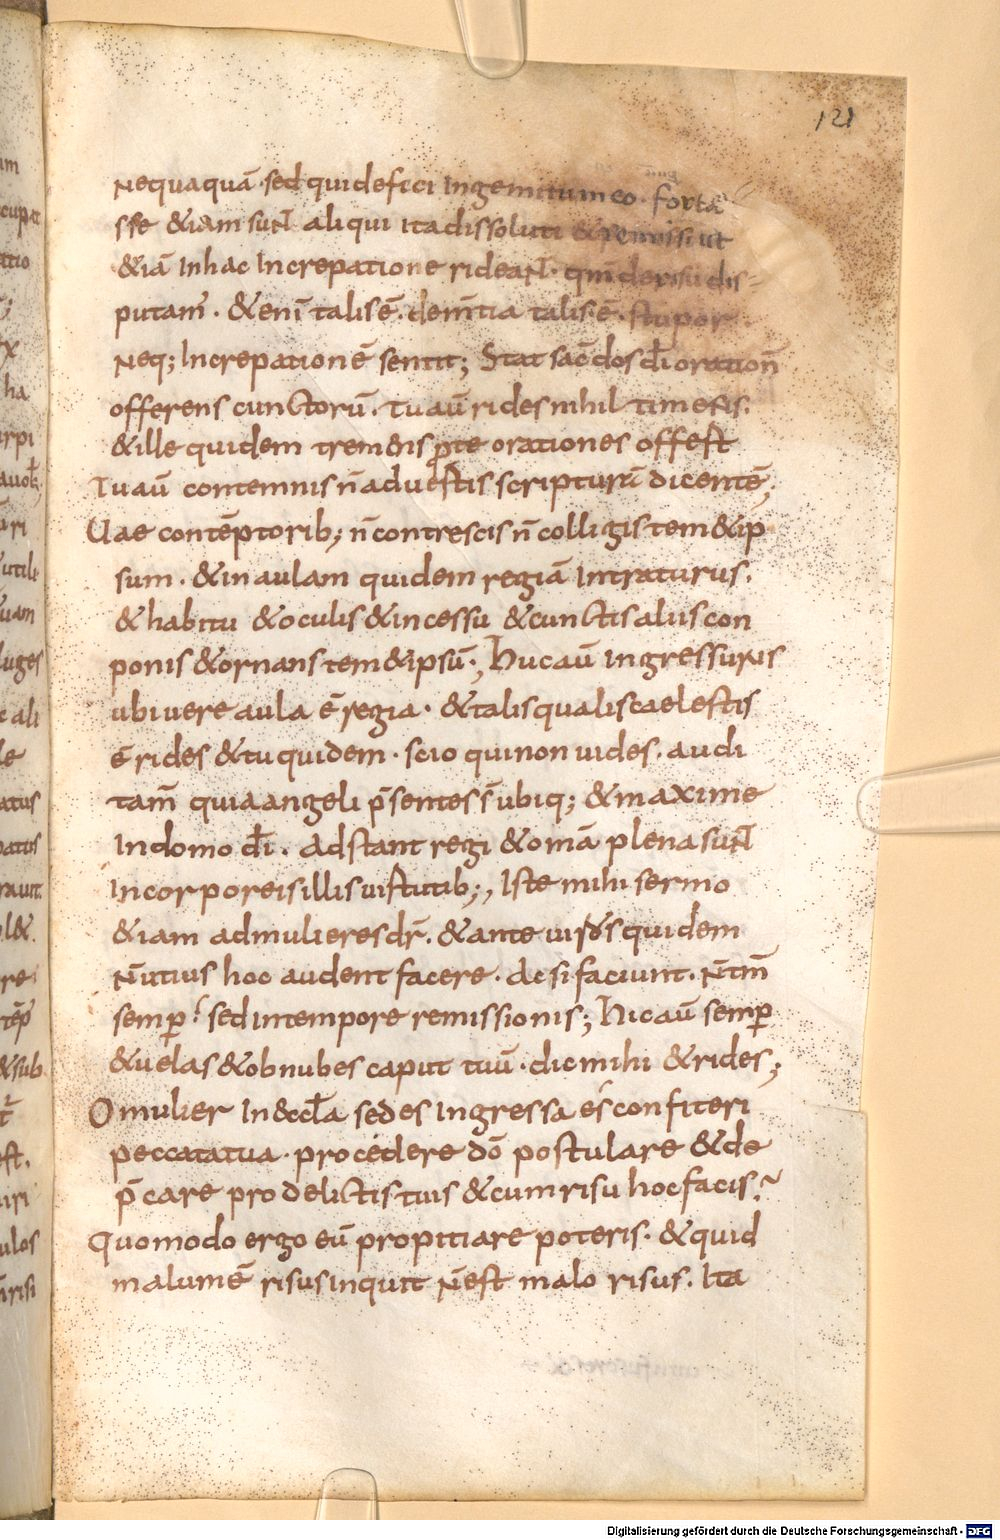 121
nequaquā · sed qui defeci In gemitu meo · fortā
sse &iam suNt aliqui ita dissoluti & remissi ut
&iā In hac Increpatione rideaNt · qm̄ de risu dis-
putam̄ · &eni talis ē · dem̄tia talis ē · stupor
neq; Increpationē sentit; Stat sac̄dos d̄i oration̄
offerens cunctorū · tu aū rides nihil timens ·
&ille quidem trem&is p̱ te orationes offert
Tu aū contemnis n̄ adv̄ertis scripturā dicentē;
Uae contēptorib; n̄ contrescis n̄ colligis tem&ip
sum · &in aulam quidem regiā Intraturus ·
& habitu &oculis &incessu &cunctis aliis con
ponis &ornans tem&ipsū; Huc aū ingressurus
ubi vere aula ē regia · &talis qualis caelestis
ē rides &tu quidem · scio qui non uides · audi
tam̄ quia angeli p̄sentes s̄ ubiq; &maxime
In domo d̄i · Adstant regi &omā plena suNt
Incorporeis illis virtutib;, Iste mihi sermo
&iam ad mulieres dr̄ · &ante viros quidem
N̄ utius hoc audent facere · Ac si faciunt · N̄ tm̄
semp̱ · sed in tempore remissionis; Hic aū semp̱
&velas &obnubes caput tuū · dic mihi &rides;
O mulier In &cc̄la sedes Ingressa es confiteri
peccata tua · procedere dō postulare &de
p̄care pro delictis tuis &cum risu hoc facis?
Quomodo ergo eū propitiare poteris · &quid
malum ē risus inquit N̄ est malo risus · Ita
am
cupat
atio
ha
arpi
luges
e ali
le
atus
patus
l&
re
tēp̄
&sub
ulos
Digitalisierung gefördert durch die Deutsche Forschungsgemeinschaft - DFG